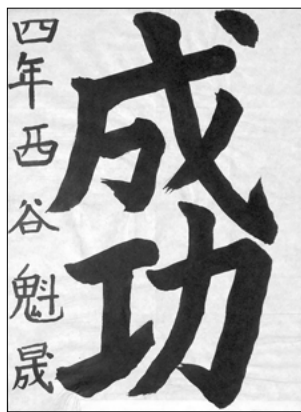 成功
四年西谷魁晟